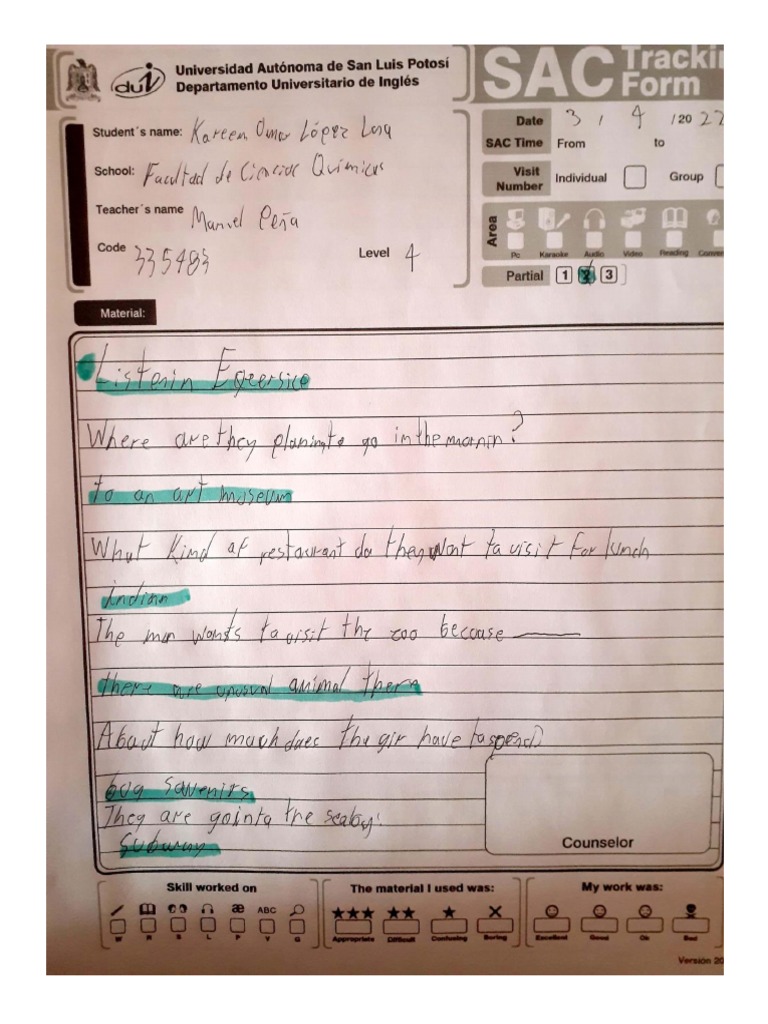 Universidad Autónoma de San Luis Potosí
Departamento Universitario de Inglés
dui
SAC Trackin
Form
Student´s name: Kareem Omar López
School: Facultad de Ciencias Químicas
Teacher´s name Manuel Peña
Code 335483
Level 4
Date 3 / 4 / 20 22
SAC Time From to
Visit Number Individual Group
Area
Pc Karaoke Audio Video Reading Conver
Partial 1 2 3
Material:
Listenin Exersice
Where are they planinto go in the mornin?
to an art museum
What Kind of restaurant do they want to visit for lunch
indian
The man wants to visit the zoo because ____
there are unusual animal there
About how much does the gir have to spend?
bug Savenirs
They are goin to the
Subway
Counselor
Skill worked on
W R S L P V G
ABC
The material I used was:
Appropriate Difficult Confusing Boring
My work was:
Excellent Good Ok Bad
Versión 20